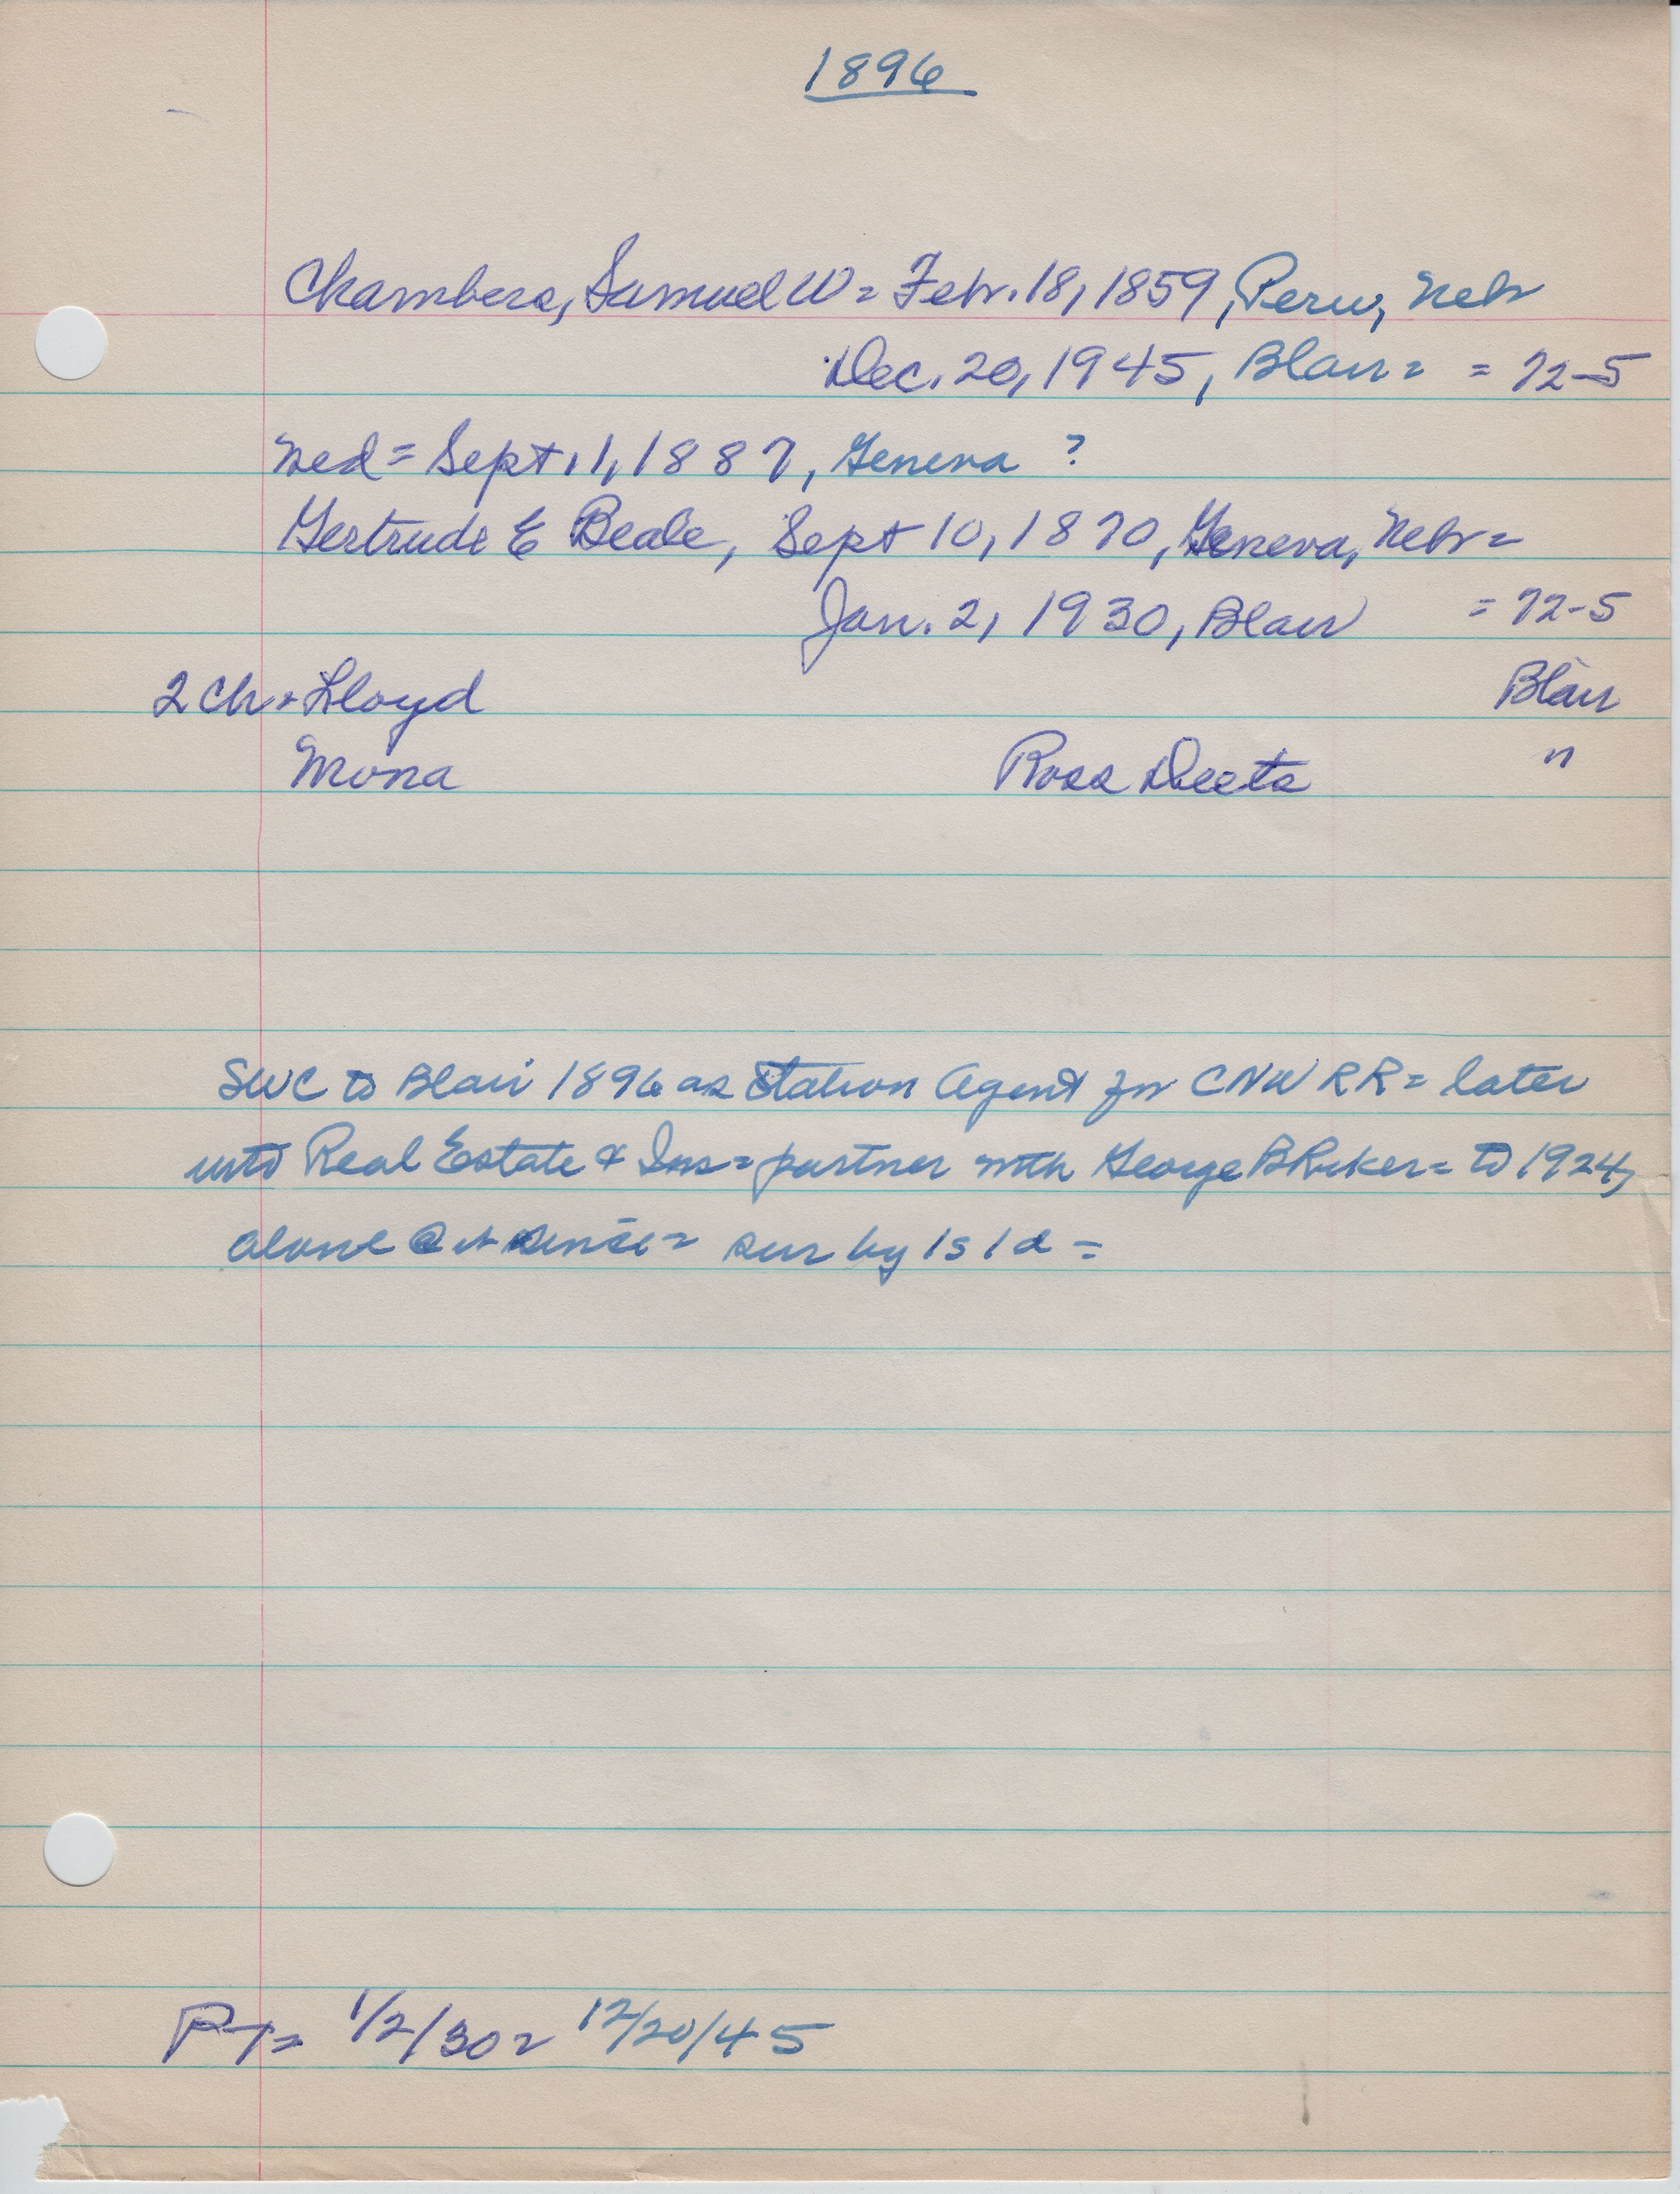 1896
Chambers, Samuel W = Febr. 18, 1859, Peru, Nebr
Dec. 20, 1945, Blair = = 72-5
Wed = Sept. 1, 1887, Geneva ?
Gertrude E Beale, Sept 10, 1870, Geneva, Nebr =
Jan. 2, 1930, Blair = 72-5
2 Ch = Lloyd Blair
Mona Ross Deets "
SWC to Blair 1896 as Station Agent for CNW RR = later
into Real Estate & Ins = partner with George B Riker = to 1924,
alone @ it since = sur by 1 s 1 d =
PT = 1/2/30 = 12/20/45